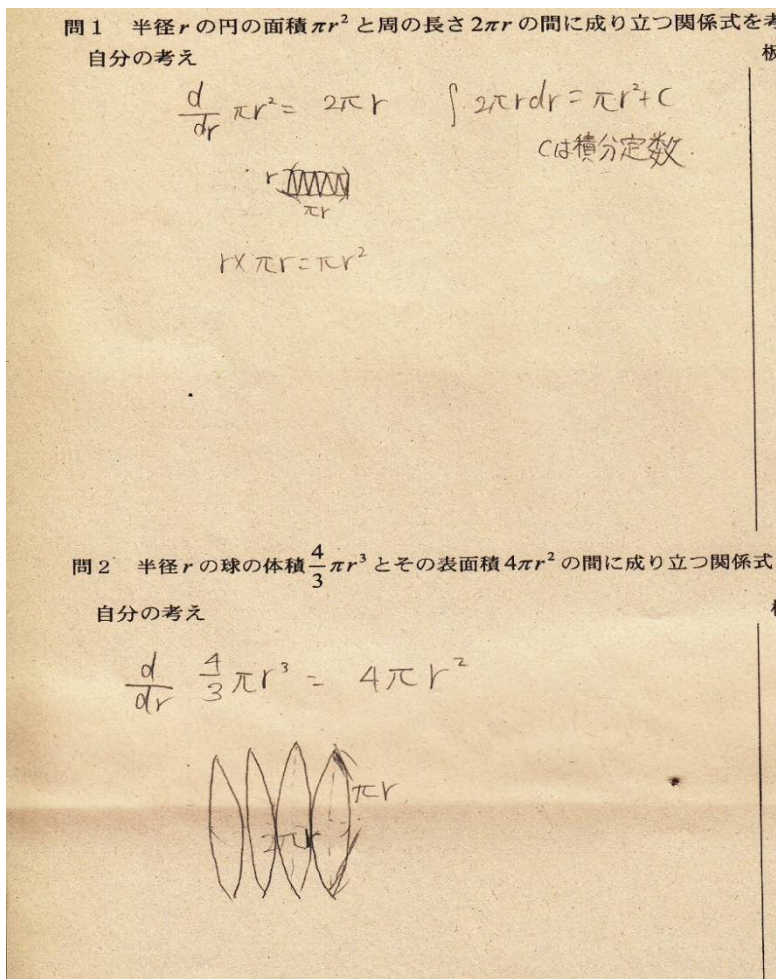 問1 半径rの円の面積πr²と周の長さ2πrの間に成り立つ関係式を考
自分の考え
d/dr πr² = 2πr ∫2πrdr = πr²+C
Cは積分定数.
r
πr
r×πr=πr²
問2 半径rの球の体積4/3πr³とその表面積4πr²の間に成り立つ関係式
自分の考え
d/dr 4/3 πr³ = 4πr²
πr
2πr